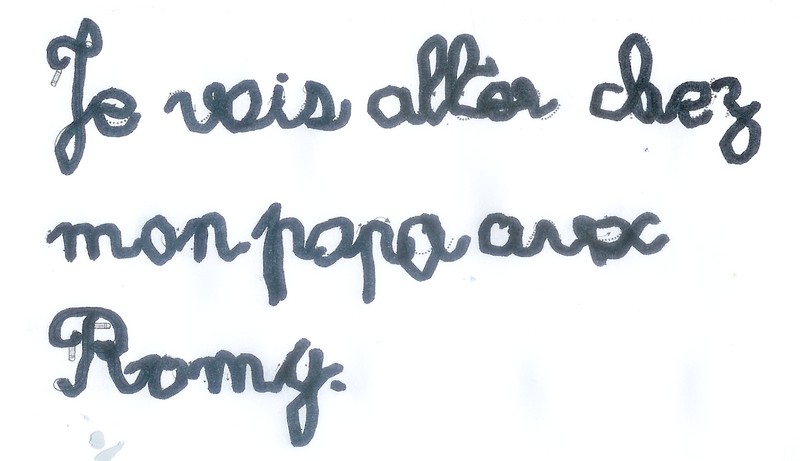 Je vais aller chez
mon papa avec
Romy.